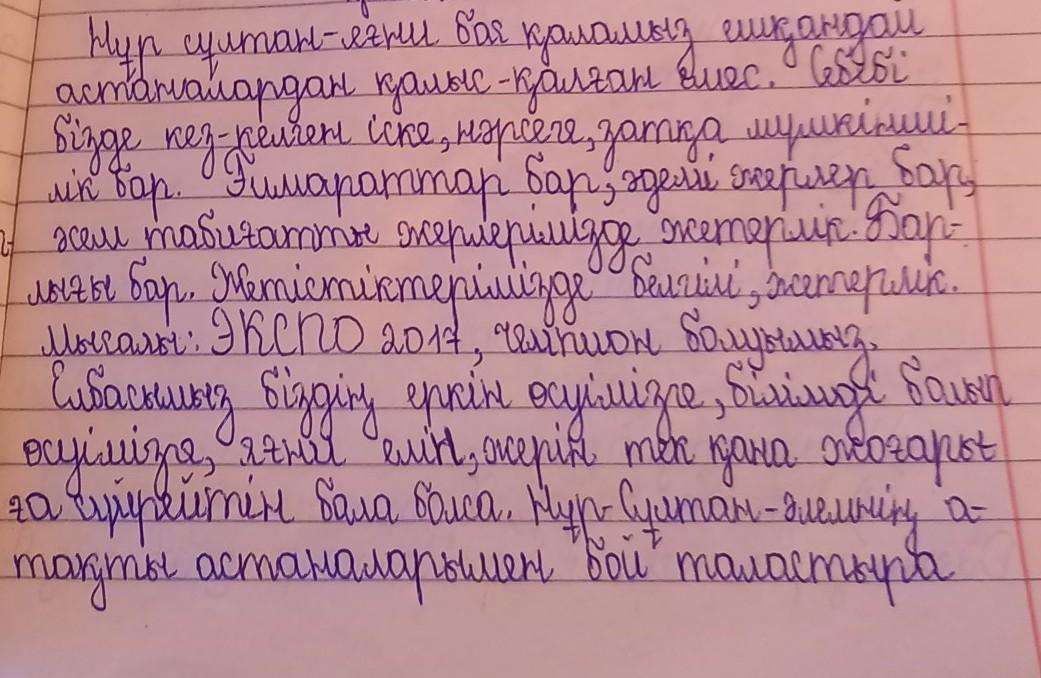 Нұр сұлтан-яғни бас қаламыз ешқандай
астаналардан қалыс-қалған емес. Себебі
бізде кез-келген іске, нәрсеге, затқа мүмкінші-
лік бар. Ғимараттар бар, әдемі жерлер бар,
әсем табиғатты жерлерімізде жетерлік. Бар-
лығы бар. Жетістіктерімізде белгілі, жетерлік.
Мысалы: ЭКСПО 2017, чемпион болуымыз.
Елбасымыз біздің еркін өсуімізге, білімді балып
өсуімізге, яғни елін, жерін тек қана жоғарыт
за сүйрейтін бала болса. Нұр-Сұлтан-әлемнің а-
тақты астаналарымен бой таластыра